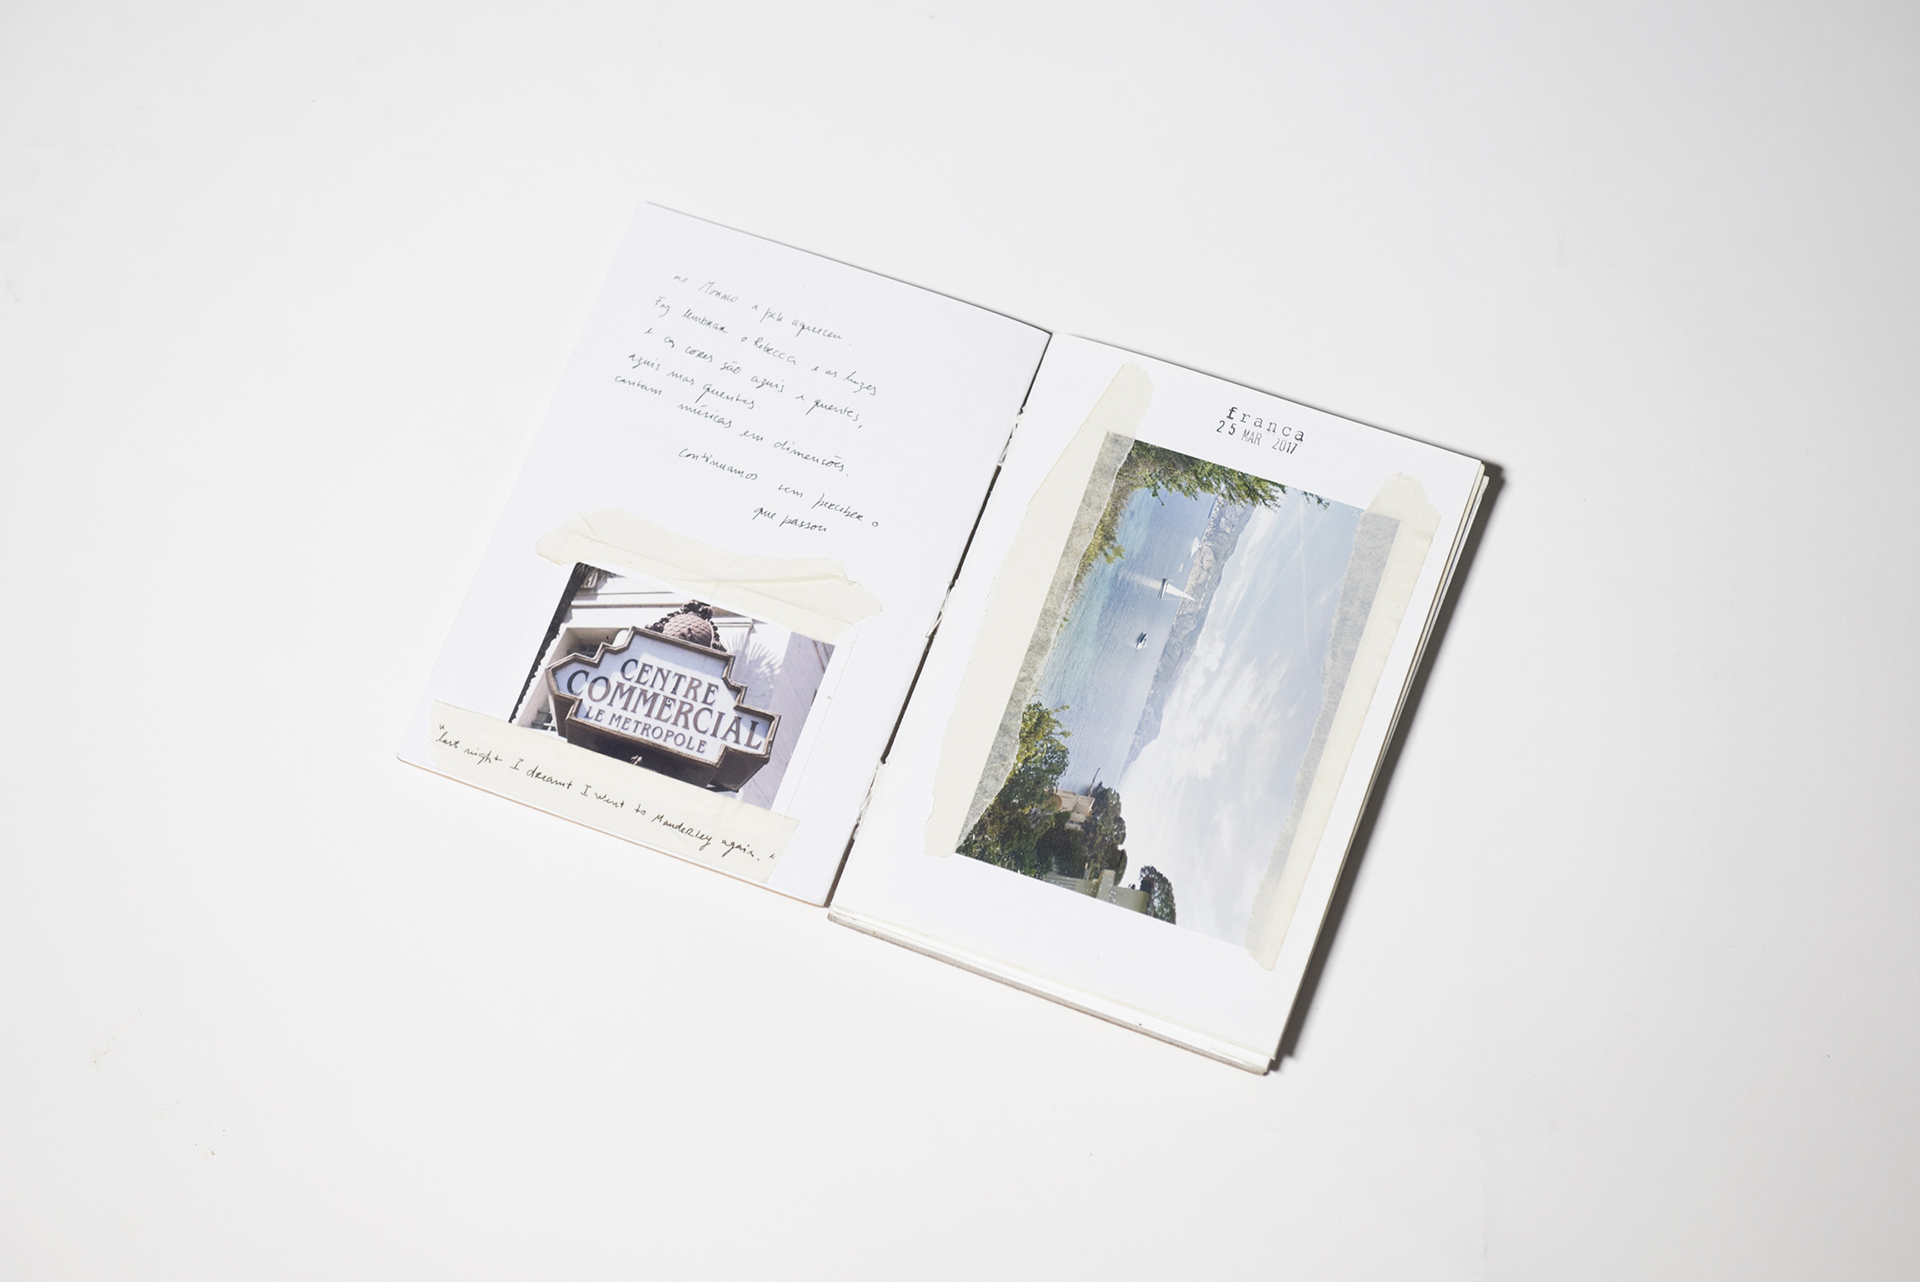 no Monaco a pele aqueceu.
Faz lembrar o Rebecca e as luzes
e as cores são azuis e quentes,
azuis mas quentes
cantam músicas em dimensões.
continuamos sem perceber o
que passou
CENTRE
COMMERCIAL
LE METROPOLE
"last night I dreamt I went to Manderley again."
franca
25 MAR 2017